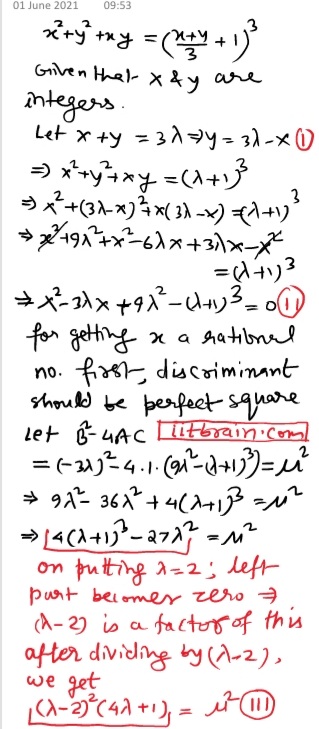 01 June 2021 09:53
x²+y²+xy = (x+y/3 + 1)³
Given that x & y are
integers.
Let x+y = 3λ ⇒ y = 3λ-x (I)
⇒ x²+y²+xy = (λ+1)³
⇒ x²+(3λ-x)²+x(3λ-x) = (λ+1)³
⇒ x²+9λ²+x²-6λx+3λx-x²
= (λ+1)³
⇒ x²-3λx+9λ²-(λ+1)³ = 0 (II)
for getting x a rational
no. first, discriminant
should be perfect square
Let B²-4AC iitbrain.com
= (-3λ)²-4.1.(9λ²-(λ+1)³) = μ²
⇒ 9λ²-36λ²+4(λ+1)³ = μ²
⇒ 4(λ+1)³-27λ² = μ²
on putting λ=2; left
part becomes zero ⇒
(λ-2) is a factor of this
after dividing by (λ-2),
we get
(λ-2)²(4λ+1) = μ² (III)